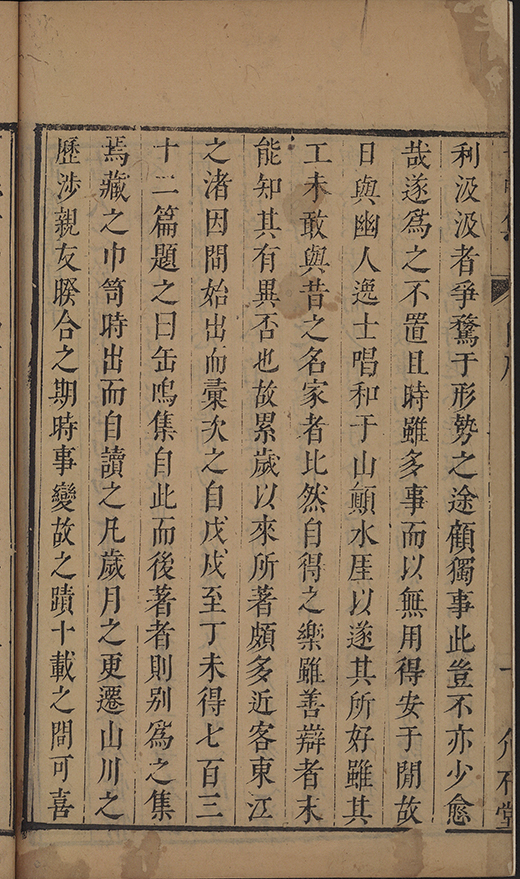 利汲汲者爭騖于形勢之途顧獨事此豈不亦少愈
哉遂爲之不置且時雖多事而以無用得安于閒故
日與幽人逸士唱和于山顛水厓以遂其所好雖其
工未敢與昔之名家者比然自得之樂雖善辯者未
能知其有異否也故累歲以來所著頗多近客東江
之渚因閒始出而彙次之自戊戌至丁未得七百三
十二篇題之曰缶鳴集自此而後著者則別爲之集
焉藏之巾笥時出而自讀之凡歲月之更遷山川之
歷涉親友睽合之期時事變故之蹟十載之間可喜